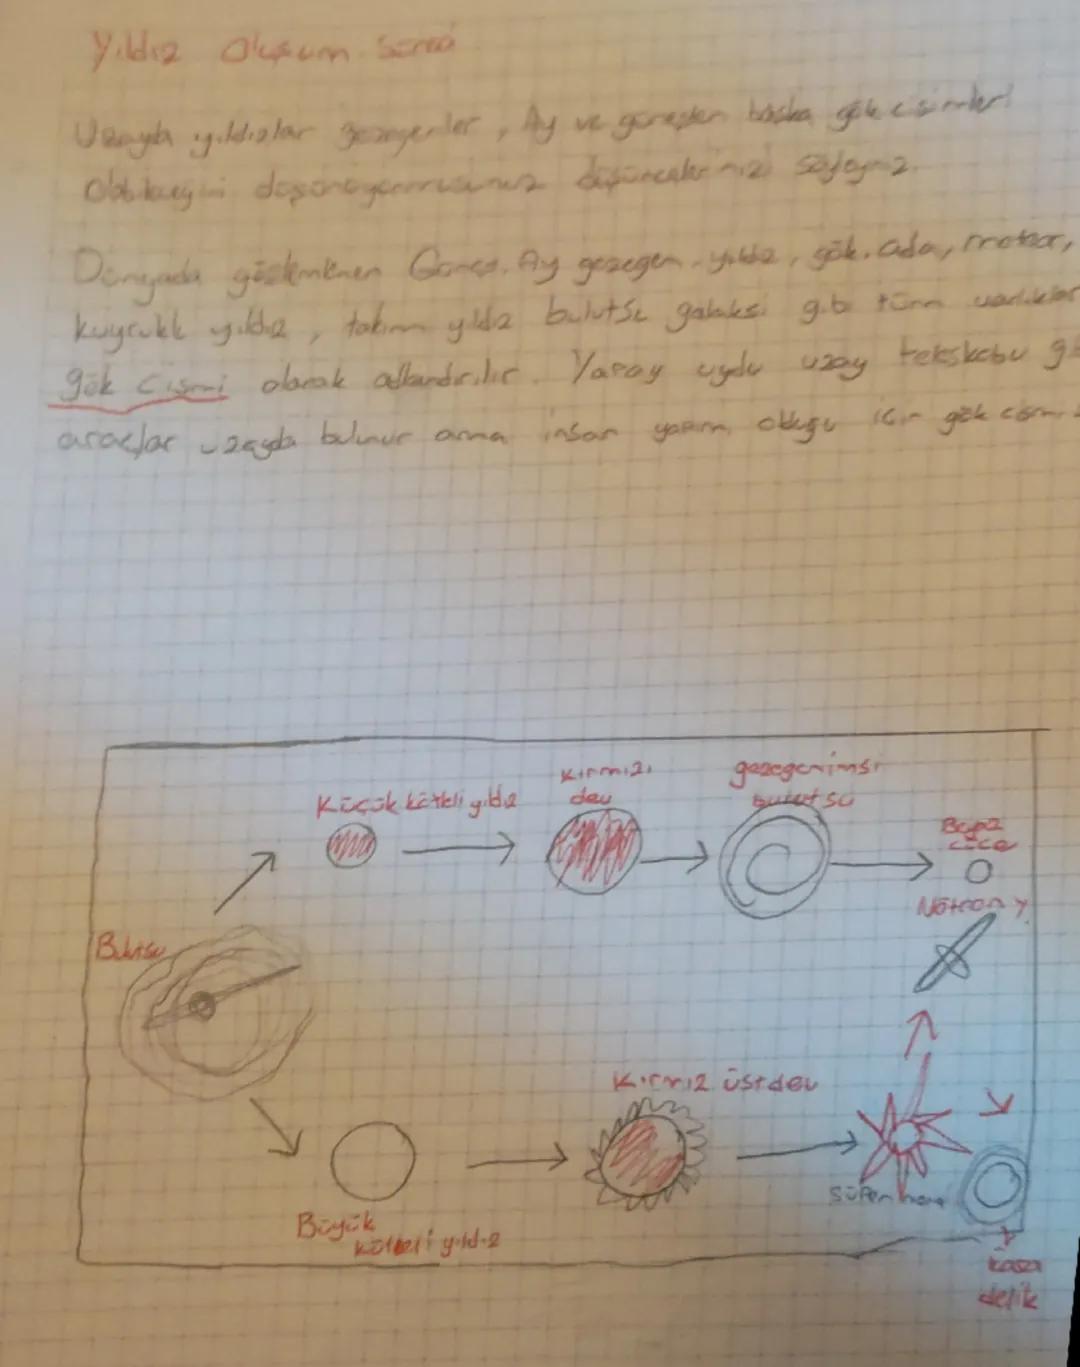 Yıldız Oluşum Süreci
Uzayda yıldızlar gezegenler, Ay ve güneşten başka gök cisimleri
olabileceğini düşünüyormusunuz düşüncelerinizi söyleyiniz.
Dünyada gözlemlenen Güneş, Ay gezegen yıldız, gök ada, meteor,
kuyruklu yıldız, takım yıldız bulutsu galaksi gibi tüm varlıklar
gök cismi olarak adlandırılır. Yapay uydu uzay teleskobu
araçlar uzayda bulunur ama insan yapımı olduğu için gök cismi
Küçük kütleli yıldız
Kırmızı
dev
gezegenimsi
bulutsu
Beyaz
cüce
Nötron y
Bulutsu
Kırmız üstdev
Süpernova
Büyük
kütleli yıldız
kara
delik